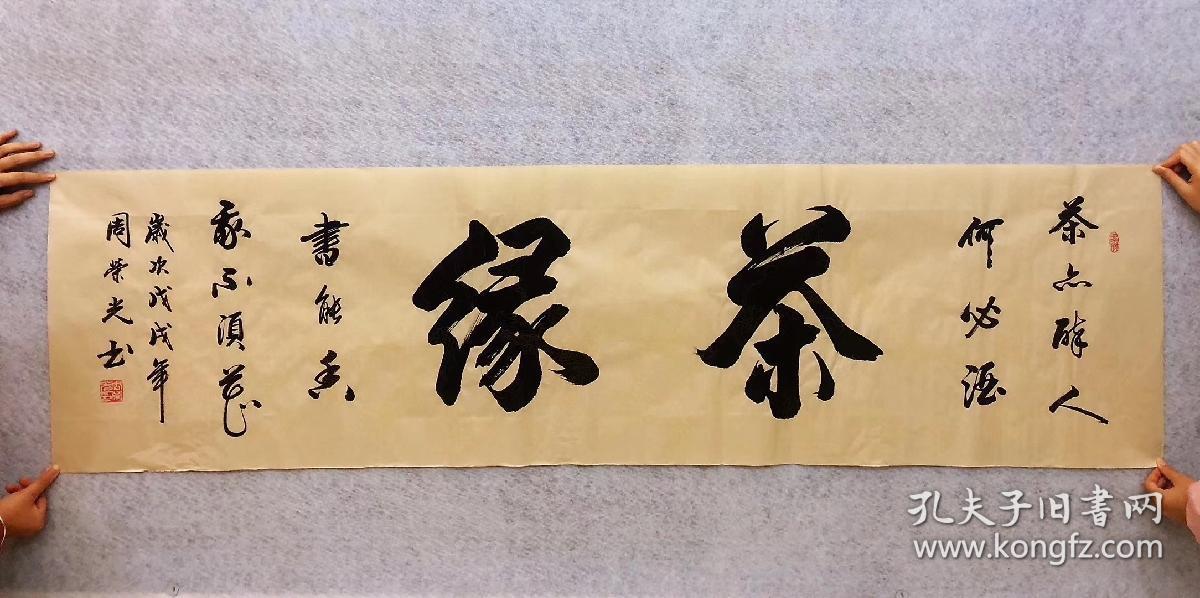 茶亦醉人
何必酒
茶缘
書能香
我不須花
歲次戊戌年
周榮光书
孔夫子旧書网
www.kongfz.com